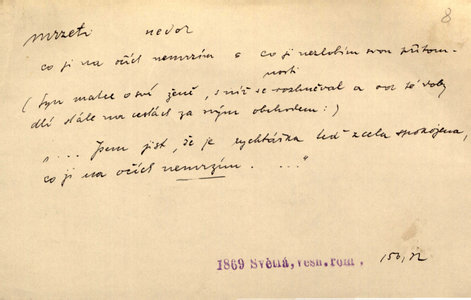 8
mrzeti nedok
co jí na očích nemrzím a co ji nezlobím svou přítom-
ností
(Syn matce o své ženě, s níž se rozhněval a od té doby
dlí stále na cestách za svým obchodem:)
"... Jsem jist, že je rychtářka teď zcela spokojena,
co jí na očích nemrzím. ..."
1869 Světlá, vesn. rom. 150,